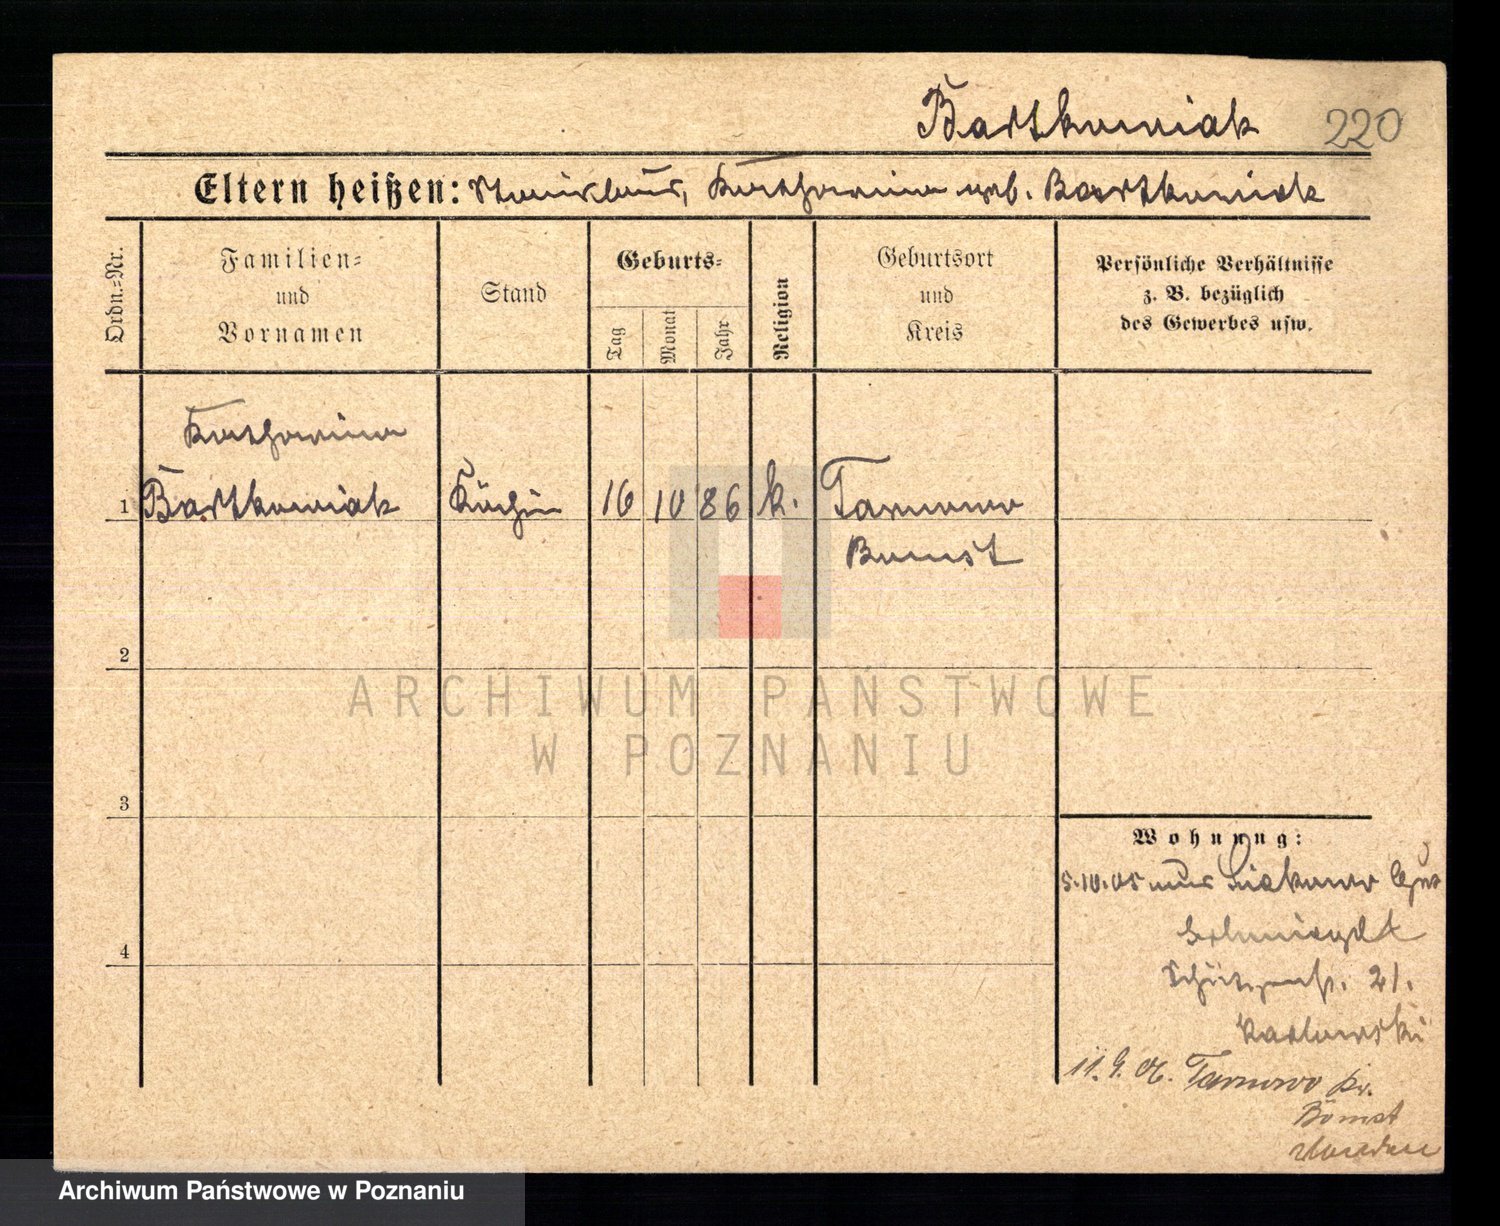 Bartkowiak 220
Eltern heißen: Stanislaus, Katharina geb. Bartkowiak
Ordn.-Nr.
Familien-
und
Vornamen
Stand
Geburts-
Tag
Monat
Jahr
Religion
Geburtsort
und
Kreis
Persönliche Verhältnisse
z. B. bezüglich
des Gewerbes usw.
Katharina
1 Bartkowiak Köchin 16 10 86 k. Tarnowo
Bomst
2
3
4
Wohnung:
5.10.05 aus
Schützenstr. 21.
Karlowski
11.9.06. Tarnowo Kr.
Bomst
ARCHIWUM PAŃSTWOWE
W POZNANIU
Archiwum Państwowe w Poznaniu